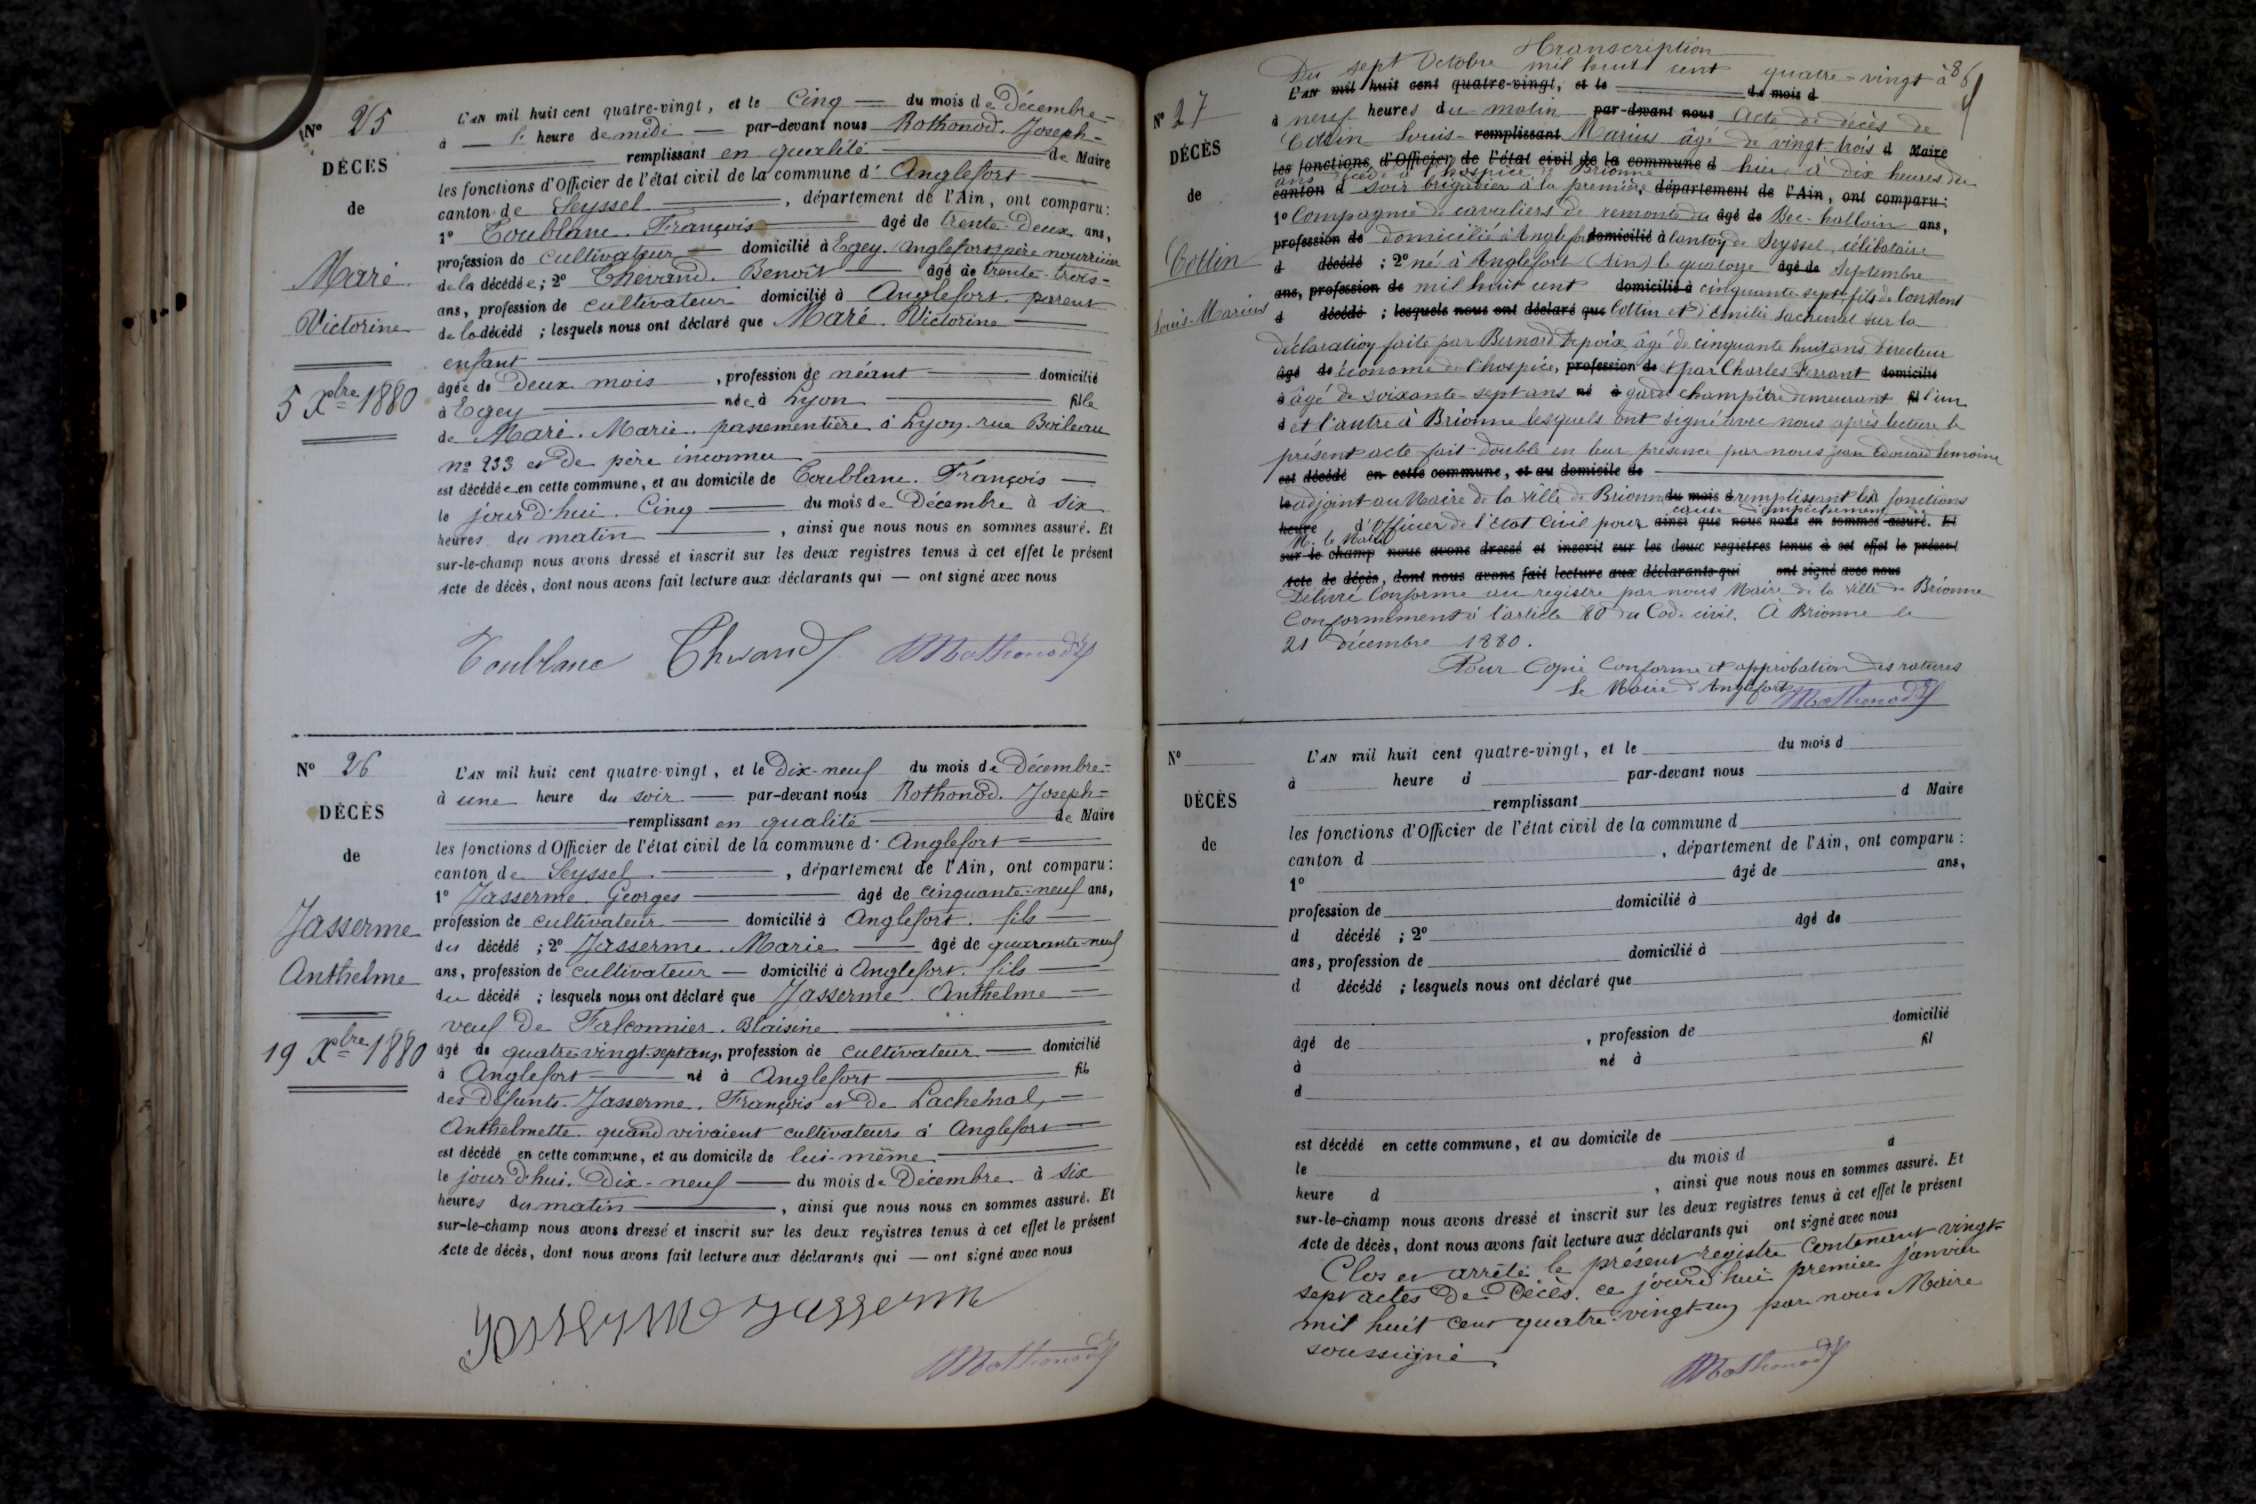 N° 25
DÉCÈS
de
Maré
Victorine
5 Xbre 1880
L'AN mil huit cent quatre-vingt, et le Cinq du mois de Décembre
à heure de midi par-devant nous Rothonod. Joseph
remplissant en qualité de Maire
les fonctions d'Officier de l'état civil de la commune d' Anglefort
canton de Seyssel, département de l'Ain, ont comparu :
1° Toublanc. François âgé de trente-deux ans,
profession de cultivateur domicilié à Egey. Anglefort, père nourricier
de la décédée ; 2° Thévand. Benoît âgé de trente-trois
ans, profession de cultivateur domicilié à Anglefort. parent
de la décédé ; lesquels nous ont déclaré que Maré. Victorine
enfant
âgée de Deux mois, profession de néant domicilié
à Egey née à Lyon fille
de Maré. Marie. passementière à Lyon. rue Boileau
n° 233 et de père inconnu
est décédée en cette commune, et au domicile de Toublanc. François
le jourd'hui. Cinq du mois de Décembre à six
heures du matin, ainsi que nous nous en sommes assuré. Et
sur-le-champ nous avons dressé et inscrit sur les deux registres tenus à cet effet le présent
Acte de décès, dont nous avons fait lecture aux déclarants qui — ont signé avec nous
Toublanc Thevand Rothonod
N° 26
DÉCÈS
de
Jasserme
Anthelme
19 Xbre 1880
L'AN mil huit cent quatre-vingt, et le Dix-neuf du mois de Décembre
à une heure du soir par-devant nous Rothonod. Joseph
remplissant en qualité de Maire
les fonctions d'Officier de l'état civil de la commune d' Anglefort
canton de Seyssel, département de l'Ain, ont comparu :
1° Jasserme. Georges âgé de cinquante-neuf ans,
profession de cultivateur domicilié à Anglefort. fils
du décédé ; 2° Jasserme. Marie âgé de quarante-neuf
ans, profession de cultivateur domicilié à Anglefort. fils
du décédé ; lesquels nous ont déclaré que Jasserme. Anthelme
veuf de Falconnier. Blaisine
âgé de quatre vingt-sept ans, profession de cultivateur domicilié
à Anglefort né à Anglefort fils
des Défunts. Jasserme. François et de Lachenal,
Anthelmette. quand vivaient cultivateurs à Anglefort
est décédé en cette commune, et au domicile de lui-même
le jourd'hui. Dix-neuf du mois de Décembre à six
heures du matin, ainsi que nous nous en sommes assuré. Et
sur-le-champ nous avons dressé et inscrit sur les deux registres tenus à cet effet le présent
Acte de décès, dont nous avons fait lecture aux déclarants qui — ont signé avec nous
Jasserme Rothonod
Transcription
86
N° 27
DÉCÈS
de
Cottin
Louis-Marius
Du sept Octobre mil huit cent quatre-vingt à
L'AN mil huit cent quatre-vingt, et le du mois d
à neuf heures du matin par-devant nous Acte de décès de
Cottin Louis- remplissant Marius âgé de vingt trois d Maire
les fonctions d'Officier de l'état civil de la commune d hier à dix heures du
ans décédé à l'hospice de Brionne
canton d soir brigadier à la première département de l'Ain, ont comparu :
1° Compagnie de cavaliers de remonte du âgé de Bec-hellouin ans,
profession de domicilié à Anglefort domicilié à canton de Seyssel, célibataire
d décédé ; 2° né à Anglefort (Ain) le quatorze âgé de Septembre
ans, profession de mil huit cent domicilié à cinquante sept, fils de Constant
d décédé ; lesquels nous ont déclaré que Cottin et d'Emilie Lachenal sur la
déclaration faite par Bernard Depoix âgé de cinquante huit ans Directeur
âgé de économe de l'hospice, profession de et par Charles Ferrant domicilié
à âgé de soixante-sept ans né à garde champêtre demeurant fil l'un
d et l'autre à Brionne lesquels ont signé avec nous après lecture le
présent acte fait double en leur présence par nous Jean Edouard Lemoine
est décédé en cette commune, et au domicile de
le adjoint au Maire de la Ville de Brionne du mois d remplissant les fonctions
cause d'empêchement de
heure d'Officier de l'état Civil pour ainsi que nous nous en sommes assuré. Et
M. le Maire
sur-le-champ nous avons dressé et inscrit sur les deux registres tenus à cet effet le présent
Acte de décès, dont nous avons fait lecture aux déclarants qui ont signé avec nous
Délivré Conforme au registre par nous Maire de la Ville de Brionne
Conformément à l'article 80 du Code civil. A Brionne le
21 décembre 1880.
Pour Copie Conforme et approbation des ratures
Le Maire d'Anglefort Rothonod
N°
DÉCÈS
de
L'AN mil huit cent quatre-vingt, et le du mois d
à heure d par-devant nous
remplissant d Maire
les fonctions d'Officier de l'état civil de la commune d
canton d , département de l'Ain, ont comparu :
1° âgé de ans,
profession de domicilié à
d décédé ; 2° âgé de
ans, profession de domicilié à
d décédé ; lesquels nous ont déclaré que
âgé de , profession de domicilié
à né à fil
d
est décédé en cette commune, et au domicile de
le du mois d à
heure d , ainsi que nous nous en sommes assuré. Et
sur-le-champ nous avons dressé et inscrit sur les deux registres tenus à cet effet le présent
Acte de décès, dont nous avons fait lecture aux déclarants qui ont signé avec nous
Clos et arrêté le présent registre Contenant vingt-
sept actes de Décès. ce jourd'hui premier janvier
mil huit cent quatre-vingt-un par nous Maire
soussigné
Rothonod